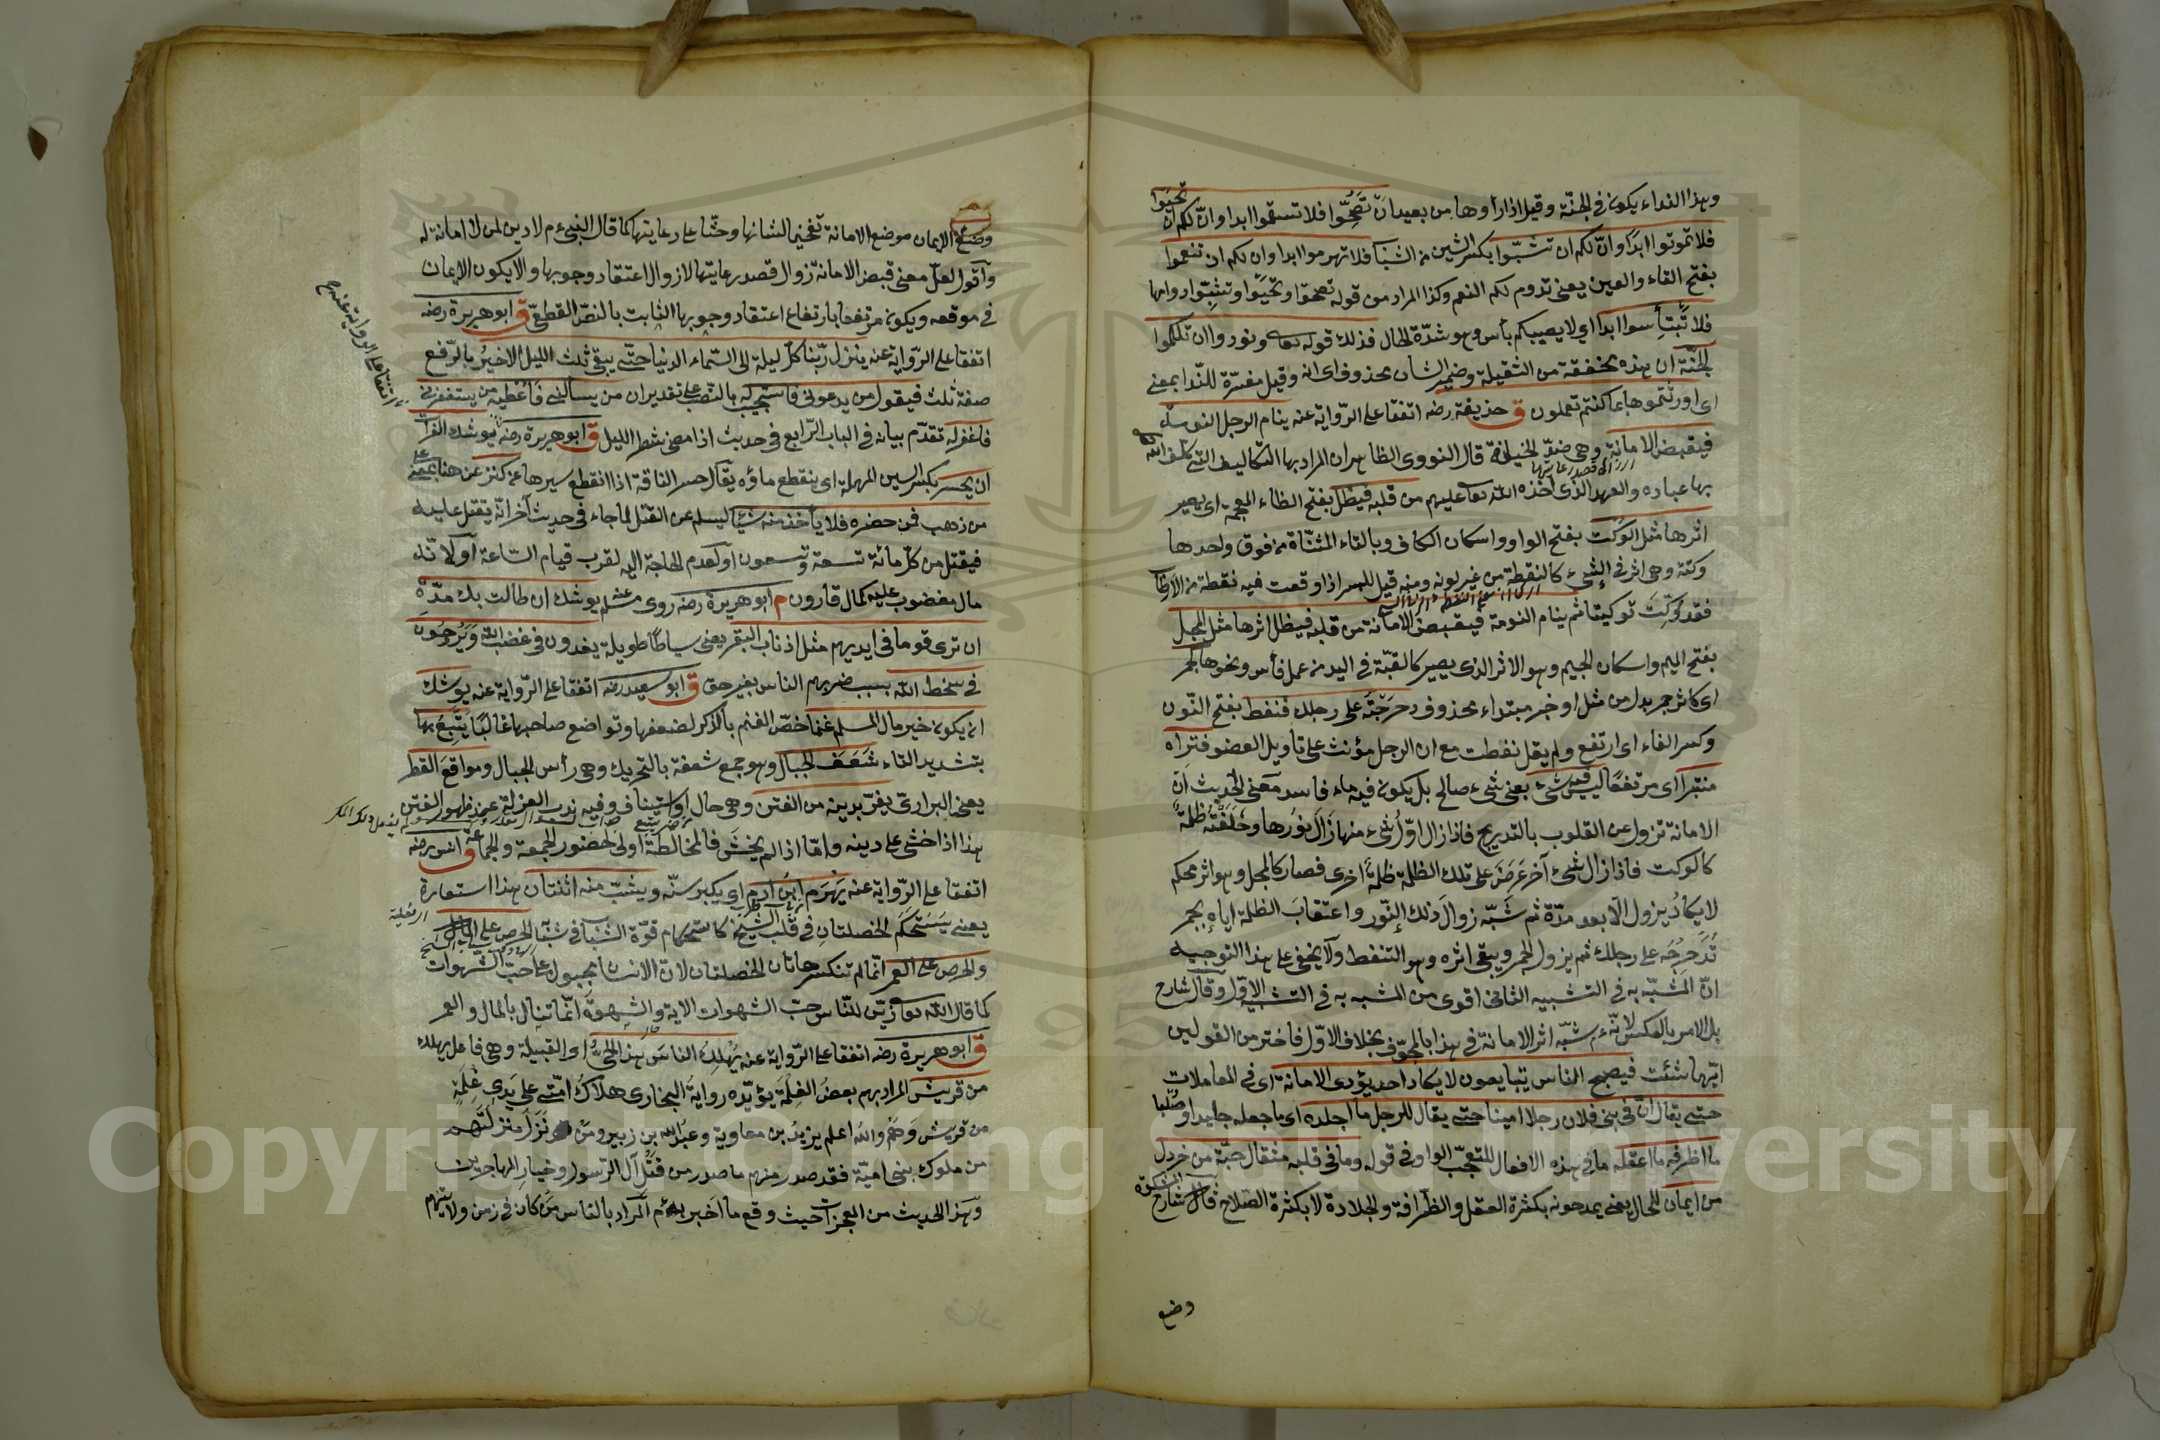 وهذا النداء يكون في الجنة وقيل اذا رأوها من بعيد ان تصحّوا فلا تسقموا ابدا وانّ لكم ان تحيوا
فلا تموتوا ابدًا وانّ لكم ان تشبّوا بكسر الشين من الشباب فلا تهرموا ابدا وان لكم ان تنعموا
بفتح التاء والعين يعني تدوم لكم النعم وكذا المراد من قوله تصحوا وتحيَوا وتشبّوا دوامها
فلا تَبتأسوا ابدا اي لا يصيبكم بأس وهو شدّة الحال فذلك قوله تعا ونودوا ان تلكموا
الجنّة ان هذه مخففة من الثقيلة وضمير الشان محذوف اي انه وقيل مفسّرة للندا بمعنى
اي اورثتموها بما كنتم تعملون ق حذيفة رضه اتفقا على الرّواية عنه ينام الرجل النومة
فيقبض الامانة وهي ضدّ الخيانة قال النووى الظاهر ان المراد بها التكاليف التي كلف الله
بها عباده والعهد الذي اخذه الله تعا عليهم من قلبه فيظل بفتح الظاء المعجمة اي يصير
اثرها مثل الوَكت بفتح الواو واسكان الكاف وبالتاء المثنّاة من فوق واحدها
وكتة وهي اثر في الشيء كالنقطة من غير لونه ومنه قيل للبسر اذا وقعت فيه نقطة من الارطاب
فقد وكّتَ توكيتا ثم ينام النومة فيقبض الامانة من قلبه فيظل اثرها مثل المجل
بفتح الميم واسكان الجيم وهو الاثر الذي يصير كالقبّة في اليد من عمل فأس ونحوها كجمر
اي كاثر جمر بدل من مثل او خبر مبتداء محذوف دحرجتَه على رجلك فنفط بفتح النّون
وكسر الفاء اي ارتفع ولم يقل نفطت مع ان الرجل مؤنث على تاويل العضو فتراه
منتبرا اي مرتفعًا ليس فيه شيء يعني شيء صالح بل يكون فيه ماء فاسد معنى الحديث انّ
الامانة تزول عن القلوب بالتدريج فاذا زال اوّل شيء منها زال نورها وخلفَتْه ظلمة
كالوكت فاذا زال شيء آخر عَرضَ على تلك الظلمة ظلمة اخرى فصار كالمجل وهو اثر محكم
لا يكادُ يزول الّا بعد مدّة ثم شَبّه زوالَ ذلك النّور واعتقابَ الظلمة اياه بجمر
تُدَحرِجُه على رجلك ثم يزول الجمر ويبقى اثره وهو التنفط ولا يخفى على هذا التوجيه
انّ المشبّه به في التشبيه الثاني اقوى من المشبه به في التشبيه الاوّل وقال شارح
بل الامر بالعكس لانّه م شبّه اثر الامانة في هذا بالمجوّف بخلاف الاوّل فاختر من القولين
ايّهما شئت فيصبح الناس يتبايعون لا يكاد احد يؤدي الامانة اي في المعاملات
حتى يقال انّ في بني فلان رجلا امينا حتى يقال للرجل ما اجلده اي ما جعله جليدا وصُلبا
ما اظرفه ما اعقله ما في هذه الافعال للتعجّب الواو في قوله وما في قلبه مثقال حبّة من خردل
من ايمان للحال يعني يمدحونه بكثرة العقل والظّرافة والجلادة لا بكثرة الصّلاح قال شارح المشكوة
وضع
وضعُ الايمان موضع الامانة تفخيما لشانها وحثّا على رعايتها كما قال النبيّ م لا دين لمن لا امانة له
وآقول لعلّ معنى قبض الامانة زوال قصد رعايتها لا زوال اعتقاد وجوبها والا يكون الايمان
في موقعه ويكون مرتفعا بارتفاع اعتقاد وجوبها الثابت بالنصّ القطعيّ ق ابو هريرة رضه
اتفقا على الرّواية عنه ينزل ربّنا كلّ ليلة الى السّماء الدنيا حتّى يبقى ثلث الليل الاخيرُ بالرّفع
صفة ثلث فيقول من يدعوني فاستجيب له بالنّصب على تقدير ان من يسألني فأُعطيه من يستغفرني
فاغفر له تقدّم بيانه في الباب الرّابع في حديث اذا مضى شطر الليل ق ابو هريرة رضه يوشك الفرات
اتفقا على الرواية عنه
ان يحسر بكسر السين المهملة اي ينقطع ماؤه يقال حسر الناقة اذا انقطع سيرها عن كنز عن هنا بمعنى على
من ذهب فمن حضره فلا يأخذ منه شيئا ليسلم عن القتل لما جاء في حديث آخر انّه يقتل عليه
فيقتل من كلّ مائة تسعة وتسعون أو لعدم الحاجة اليه لقرب قيام السّاعة أو لانّه
مال مغضوب عليه كمال قارون م ابو هريرة رضه روى مسلم عنه يوشك ان طالت بك مدّة
ان ترى قوما في ايديهم مثل اذناب البقر يعني سياطًا طويلة يغدون في غضب الله وَيَرُوحُون
في سخط الله بسبب ضربهم الناس بغير حق ق ابو سعيد رضه اتفقا على الرّواية عنه يوشك
ان يكون خير مال المسلم غنما خصّ الغنم بالذكر لضعفها وتواضع صاحبها غالبًا يتّبع بها
بتشديد التاء شَعَفَ الجبال وهو جمع شعفة بالتحريك وهي رأس الجبال ومواقعَ القطر
يعني البراريّ يفرّ بدينه من الفتن وهي حال او استيناف وفيه ندب العزلة عند ظهور الفتن
هذا اذا خشي على دينه وامّا اذا لم يخشَ فالمخالطة اولى لحضور الجمعة والجماعة ق انس رضه
اتفقا على الرّواية عنه يَهرَم ابن آدم اي يكبر سنّه ويشبّ منه اثنتان هذا استعارة
يعني يَستحكَم الخصلتان في قلب الشيخ كاستحكام قوّة الشباب في شبابه الحرص على المال
والحرص على العمر انّما لم تنكسر هاتان الخصلتان لانّ الانسان مجبول على حبّ الشّهوات
كما قال الله تعا زيّن للنّاس حبّ الشهوات الاية والشهوة انّما تنال بالمال والعمر
ق ابو هريرة رضه اتفقا على الرّواية عنه يُهلِكُ الناسَ هذا الحيّ او القبيلة وهي فاعل يهلك
من قريش المراد بهم بعضُ الغِلْمَة يؤيّده رواية البخاري هلاكُ امّتي على يَدَي غِلْمَةٍ
من قريش وَهُم والله اعلم يزيدُ بن معاوية وعبد الله بن زبير ومَن نَزَلَ منزلتَهم
من ملوك بني اميّة فقد صدر منهم ما صدر من قَتْل آل الرّسول وخيار المهاجرين
وهذا الحديث من المعجزات حيث وقع ما اخبر به م المراد بالناس مَن كان في زمن ولايتهم
Copyright © King Saud University